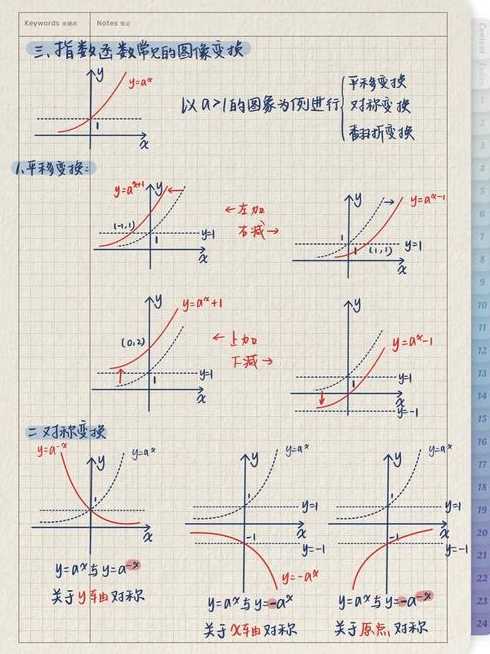 Keywords 关键词 Notes 笔记
三.指数函数常见的图像变换
y
y=aˣ
1
x
以a>1的图象为例进行
平移变换
对称变换
翻折变换
1.平移变换:
y=aˣ⁺¹
y
(-1,1)
1
y=1
x
←左加
右减→
y
y=aˣ⁻¹
1
(1,1)
y=1
x
y
y=aˣ+1
(0,2)
1
y=1
x
←上加
下减→
y
y=aˣ-1
1
y=1
x
y=-1
二.对称变换
y=a⁻ˣ
y
y=aˣ
1
x
y=aˣ与y=a⁻ˣ
关于y轴对称
y
y=aˣ
1
y=1
x
-1
y=-1
y=-aˣ
y=aˣ与y=-aˣ
关于x轴对称
y
y=aˣ
1
y=1
x
-1
y=-1
y=aˣ与y=-a⁻ˣ
关于原点对称
1
2
3
4
5
6
7
8
9
10
11
12
13
14
15
16
17
18
19
20
21
22
23
24